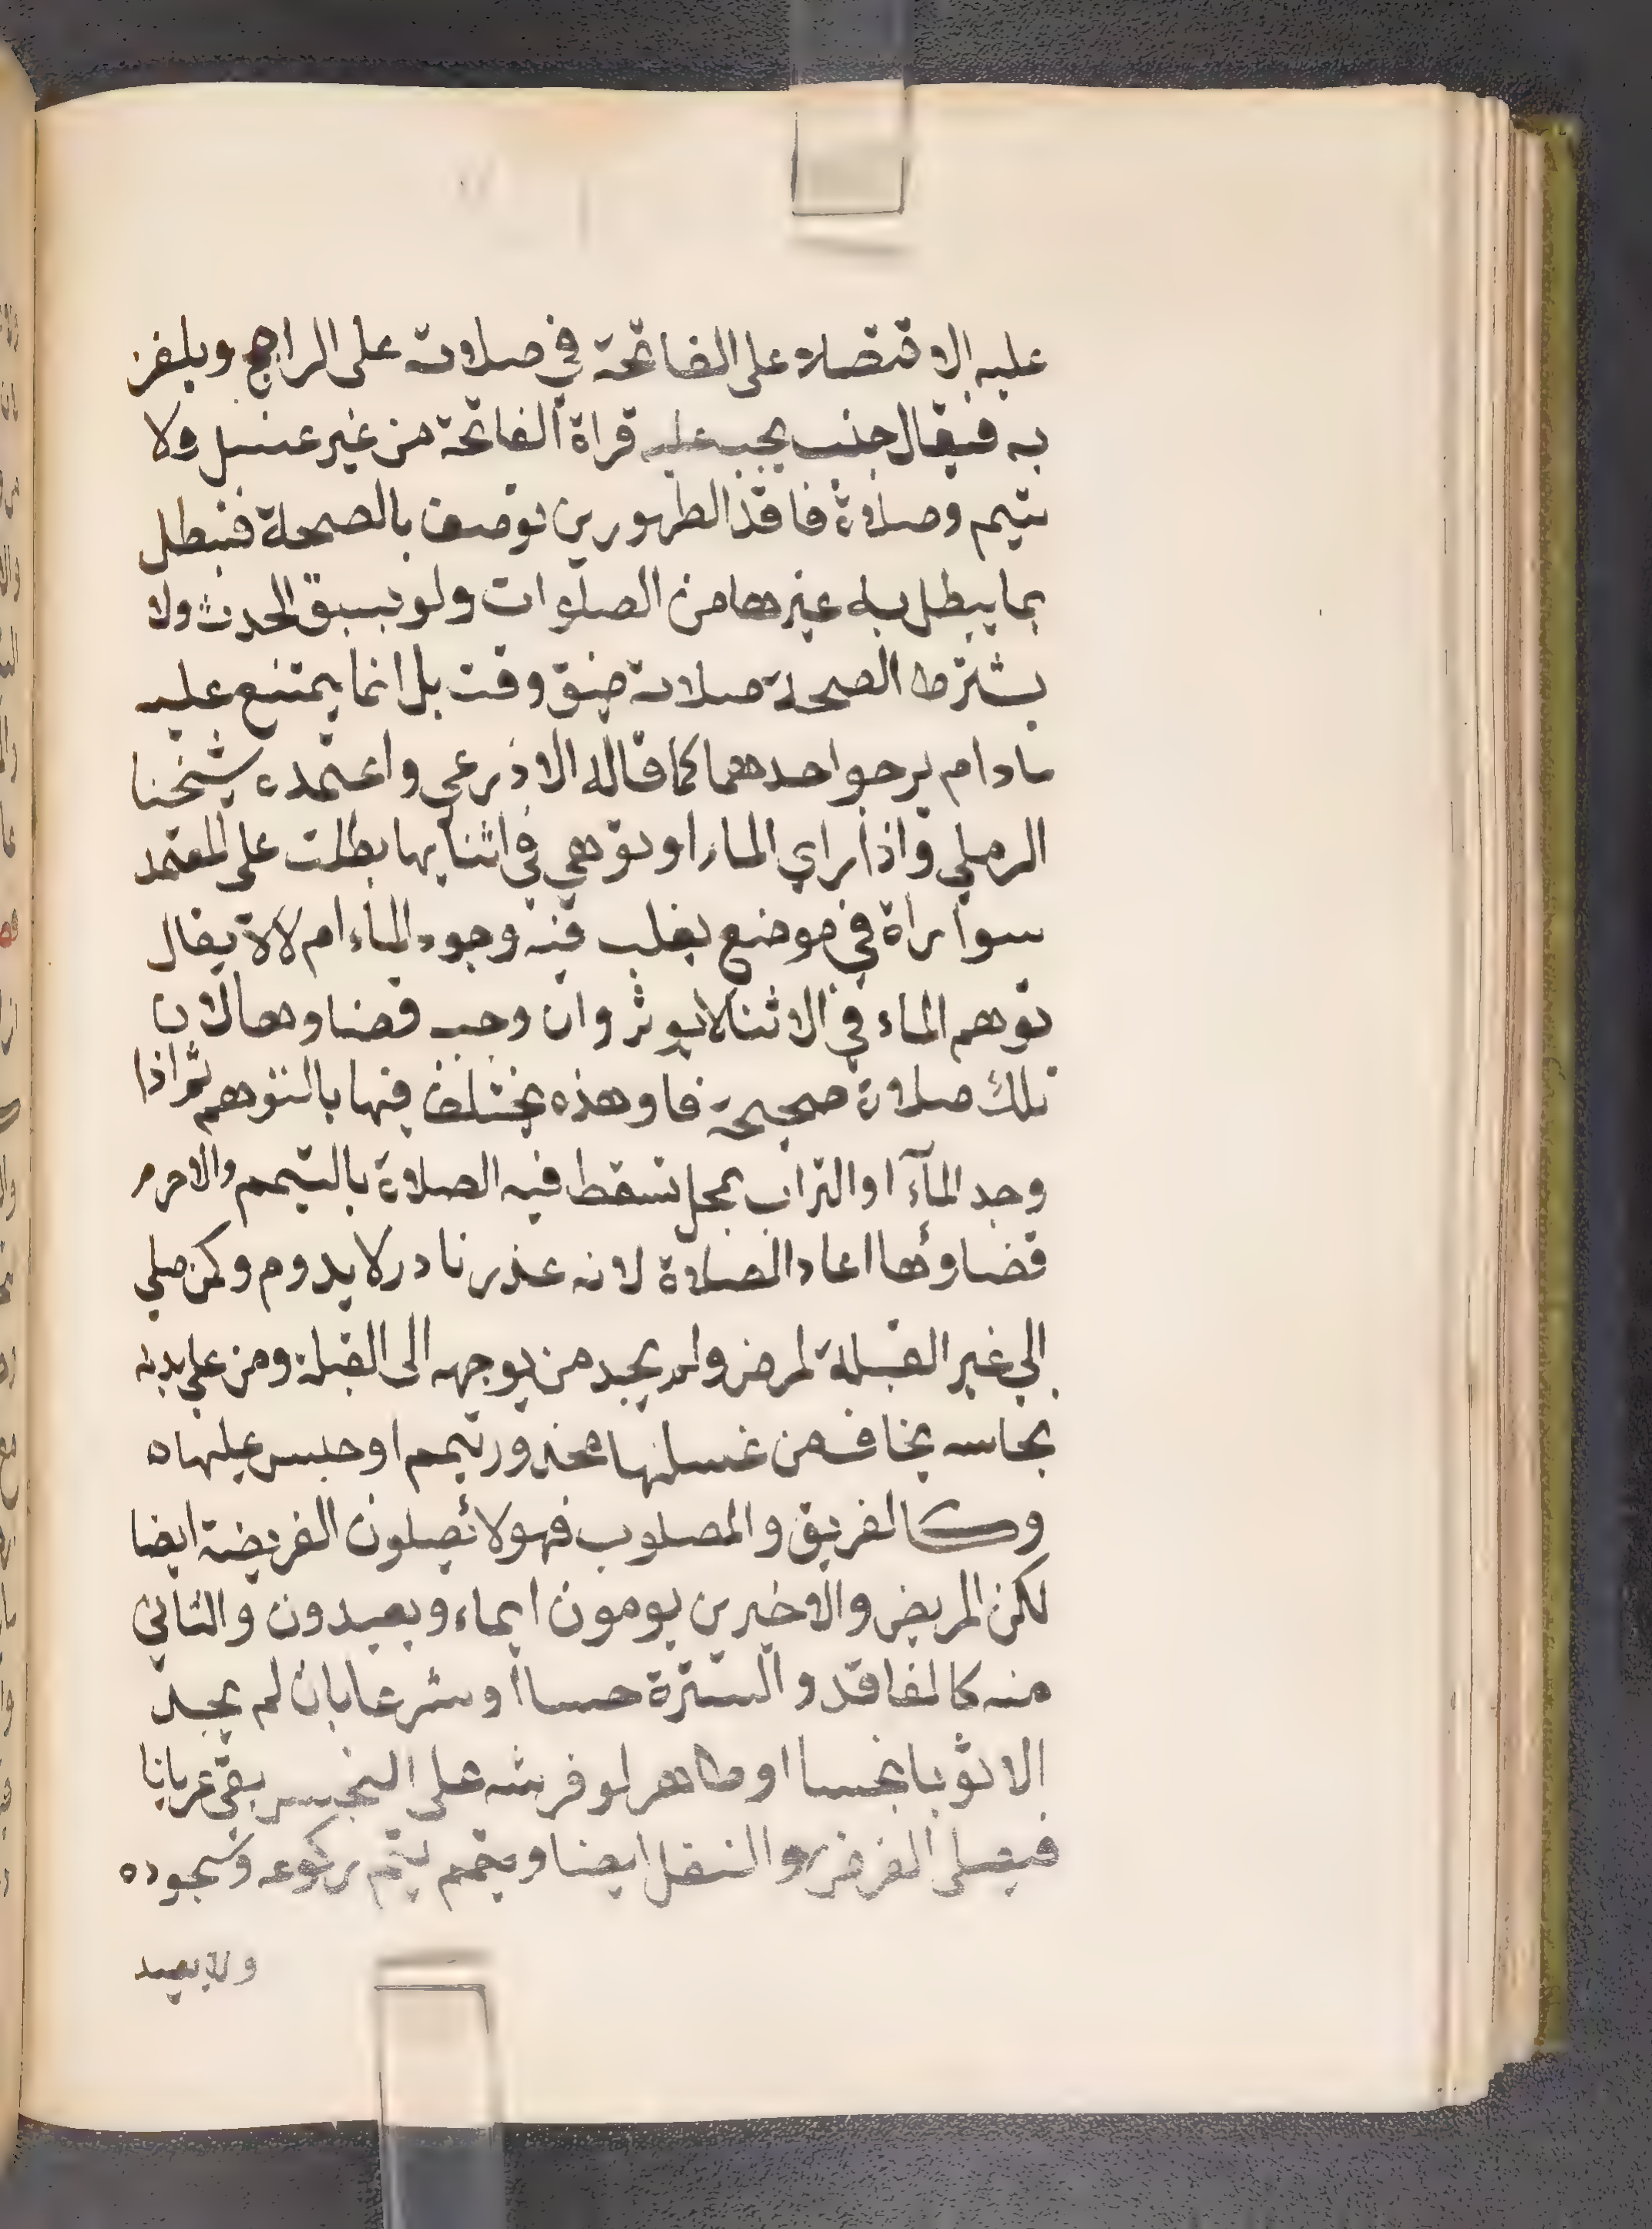 عليه الاقتصار على الفاتحة في صلاته على الراجح ويلغز
به فيقال جنب يجب عليه قراة الفاتحة من غير غسل ولا
تيمم وصلاة فاقد الطهورين توصف بالصحة فتبطل
بما يبطل به غيرها من الصلوات ولو بسبق الحدث ولا
يشترط الصحة صلاته ضيق وقت بل انما يمتنع عليه
مادام يرجو احدهما كما قاله الاذرعي واعتمده شيخنا
الرملي واذا راي الماء او توهمي في اثنايها بطلت على المعتمد
سوا راة في موضع يغلب فيه وجود الماء ام لا لا يقال
توهم الماء في الاثنا لا يوثر وان وجب قضاوها لان
تلك صلاة صحيحة فا وهذه يختلف فيها بالتوهم ثم اذا
وجد المآء او التراب بمحل تسقط فيه الصلاة بالتيمم والا حرم
قضاوئها اعاد الصلاة لانه عذر نادر لا يدوم وكمن صلي
الي غير القبلة لمرض ولم يجد من يوجهه الى القبلة ومن علي بدنه
نجاسه يخاف من غسلها محذور تيمم او حبس عليها ه
وكالغريق والمصلوب فهولائ يصلون الفريضة ايضا
لكن المريض والاخيرين يومون ايماء ويعيدون والثاني
منه كالفاقد والسترة حسا او شرعا بان لم يجد
الا ثوبا نجسا او طاهر لو فرشه على النجس بقى عريانا
فيصلى الفرض والنفل ايضا ويتمم يتم ركوعه وسجوده
ولا يعيد